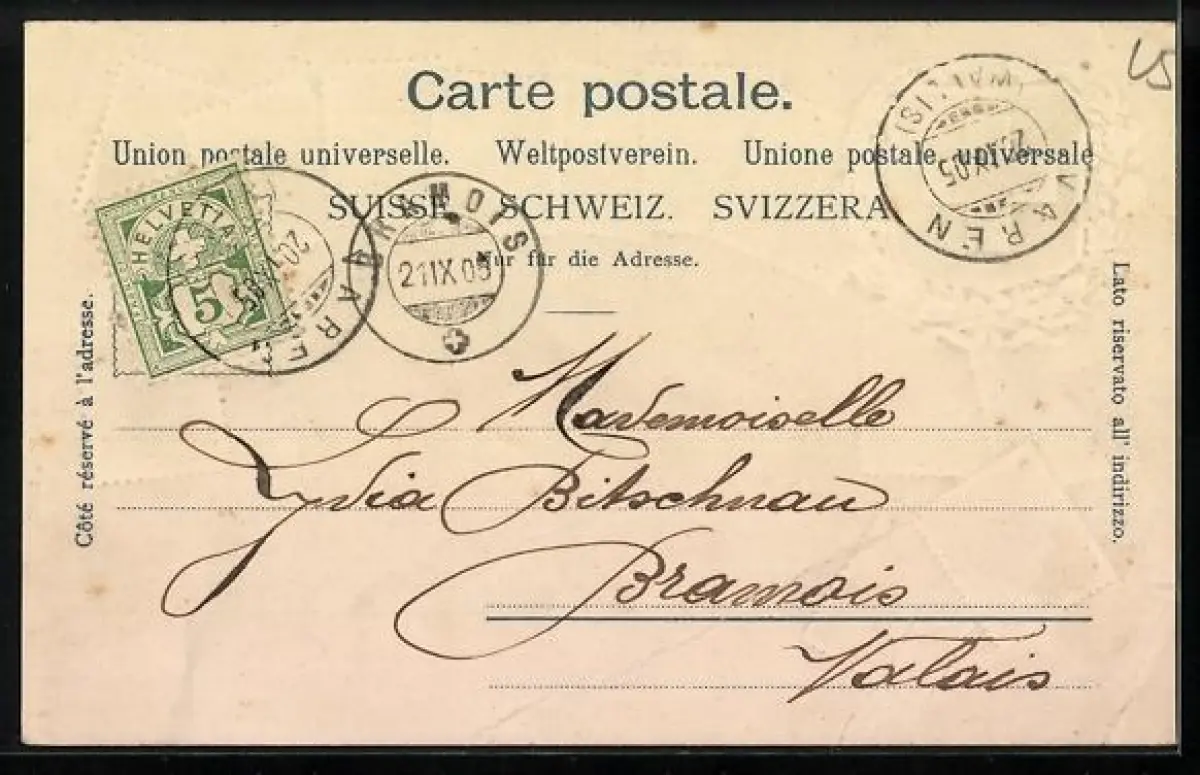 Carte postale.
Union postale universelle. Weltpostverein. Unione postale universale
SUISSE. SCHWEIZ. SVIZZERA
Nur für die Adresse.
HELVETIA
5
VAREN
BRAMOIS
21 IX 05
VAREN
(WALLIS)
IX.05
Côté réservé à l'adresse.
Lato riservato all' indirizzo.
Mademoiselle
Lydia Bitschnau
Bramois
Valais